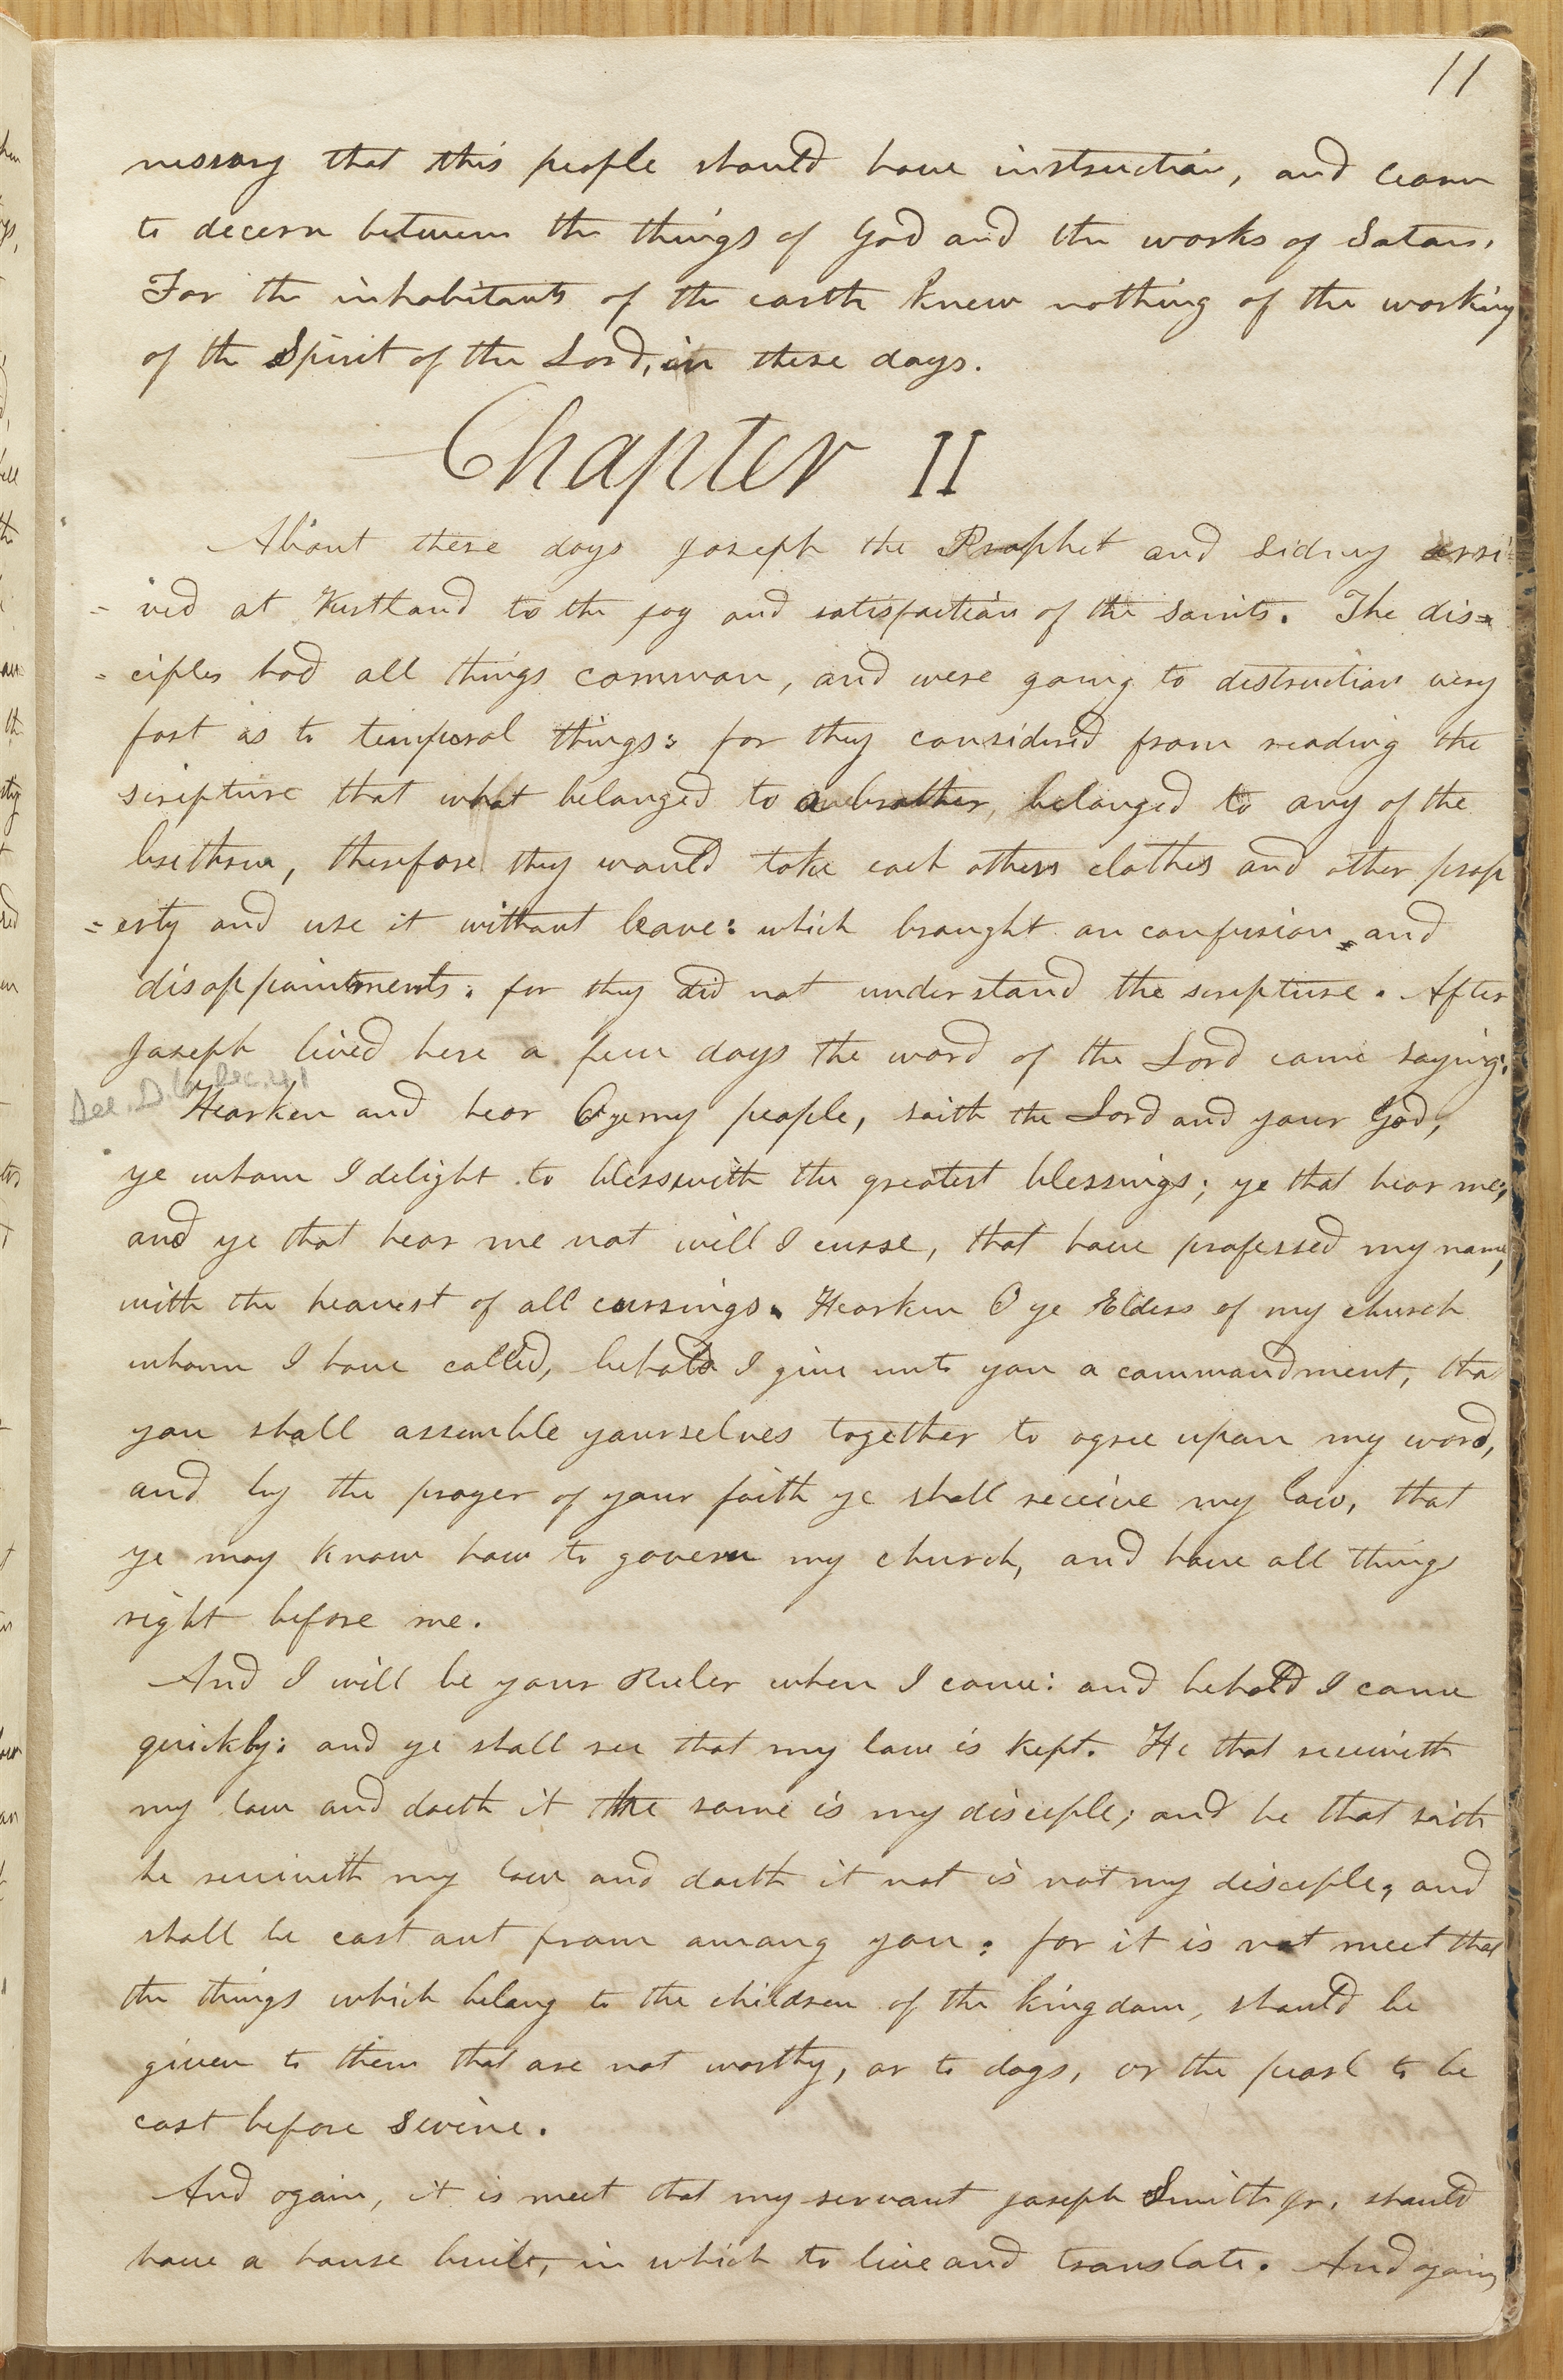 11
nessary that this people should have instruction, and learn
to decern between the things of God and the works of Satan.
For the inhabitants of the earth knew nothing of the working
of the Spirit of the Lord, in these days.
Chapter II
About these days Joseph the Prophet and Sidney arri=
=ved at Kirtland to the joy and satisfaction of the saints. The dis=
=ciples had all things common, and were going to destruction very
fast as to temporal things: for they considered from reading the
scripture that what belonged to one brother, belonged to any of the
brethren, therefore they would take each others clothes and other prop
=erty and use it without leave: which brought on confusion and
disappointments: for they did not understand the scripture. After
Joseph lived here a few days the word of the Lord came saying:
Hearken and hear O ye my people, saith the Lord and your God,
ye whom I delight to bless with the greatest blessings; ye that hear me;
and ye that hear me not will I curse, that have professed my name,
with the heavest of all cursings. Hearken O ye Elders of my church
whom I have called, behold I give unto you a commandment, that
you shall assemble yourselves together to agree upon my word,
and by the prayer of your faith ye shall receive my law, that
ye may know how to govern my church, and have all things
right before me.
And I will be your Ruler when I come: and behold I come
quickly: and ye shall see that my law is kept. He that receiveth
my law and doeth it the same is my disciple; and he that saith
he receiveth my law and doeth it not is not my disciple, and
shall be cast out from among you: for it is not meet that
the things which belong to the children of the kingdom, should be
given to them that are not worthy, or to dogs, or the pearl to be
cast before swine.
And again, it is meet that my servant Joseph Smith Jr. should
have a house built, in which to live and translate. And again,